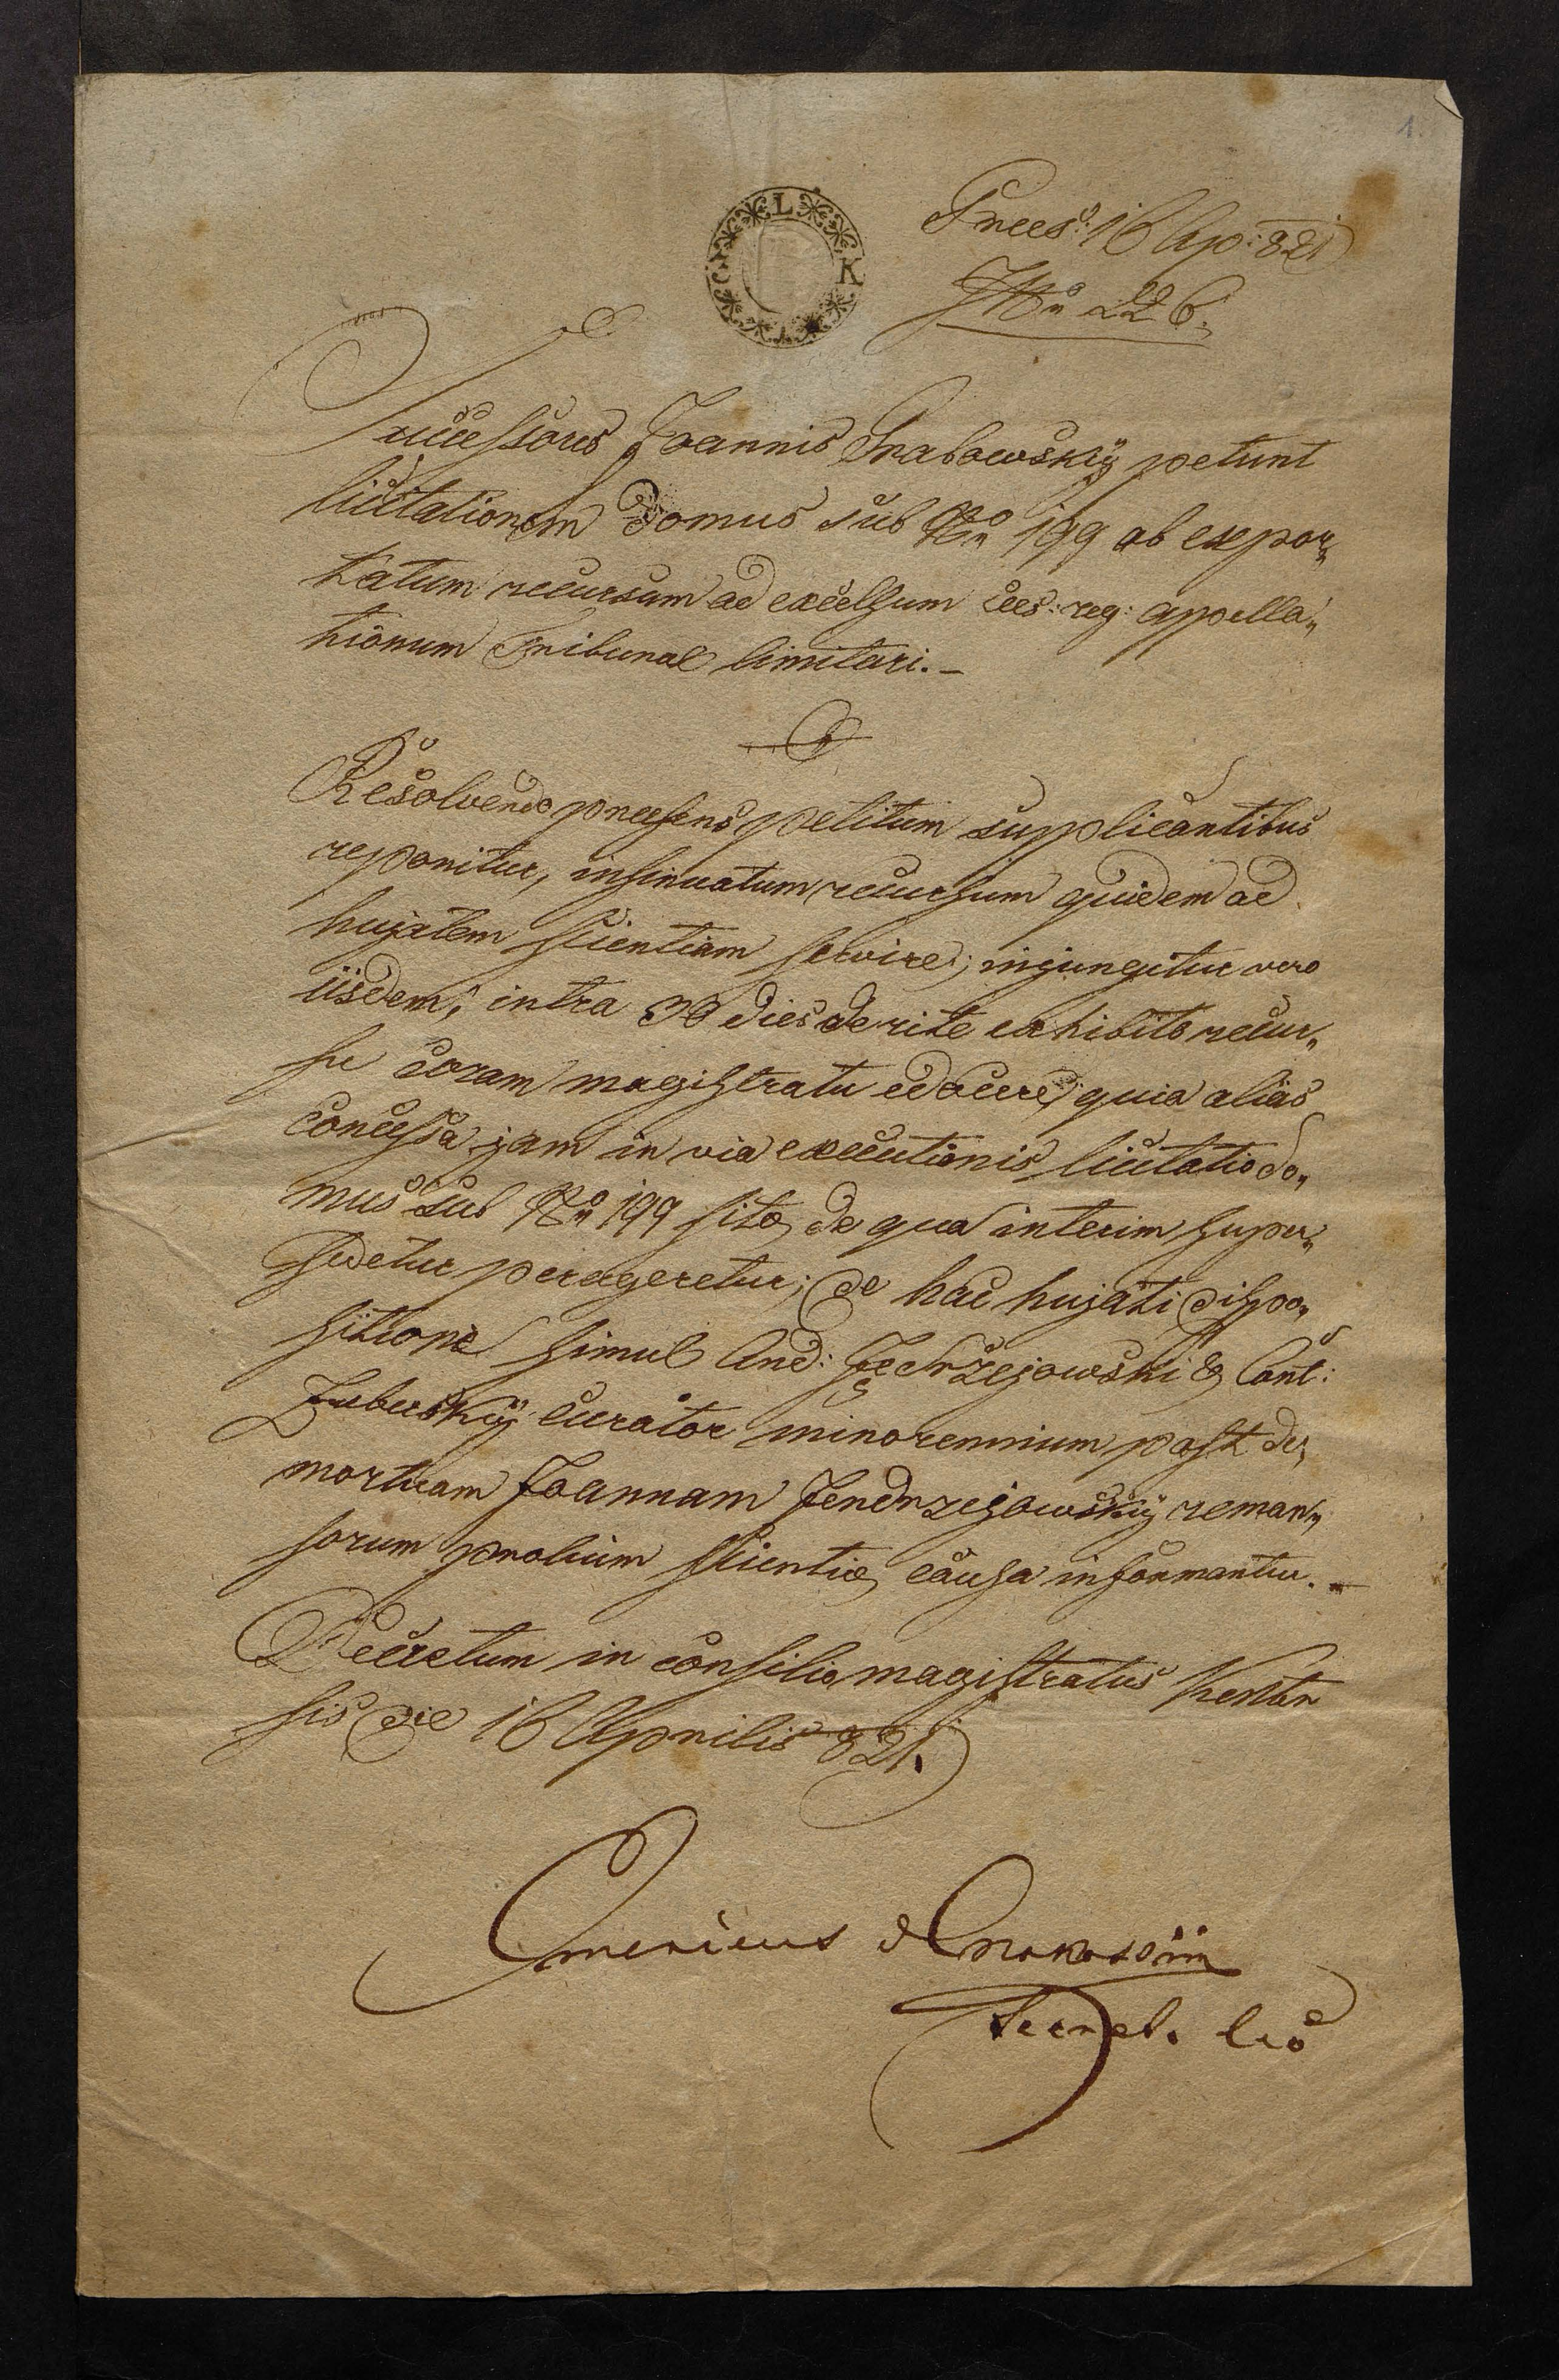 1.
Praes: 16 Ap: 821
No 226.
L
K
Successores Joannis Grabowskÿ petunt
licitationem Domus sub No 199 ob expor„
tatum recursum ad excelsum Caes: reg: appella„
tionum Tribunal limitari. –
Resolvendo praesens petitum supplicantibus
reponitur, insinuatum recursum quidem ad
hujatem scientiam servire; injungitur vero
iisdem; intra 30 dies de rite exhibito recur„
su coram magistratu edocere, quia alias
concessa jam in via executionis licitatio do„
mus sub No 199 sitae, de qua interim super„
sedetur perageretur; de hac hujati dispo„
sitione simul And: Jędrzejowski & Ant:
Zubuskÿ curator minorennium post de„
mortuam Joannam Jendrzejowskÿ reman„
sorum prolium scientiae causa informantur. –
Decretum in consilio magistratus Kent
sis die 16 Aprilis 821.
Emericus